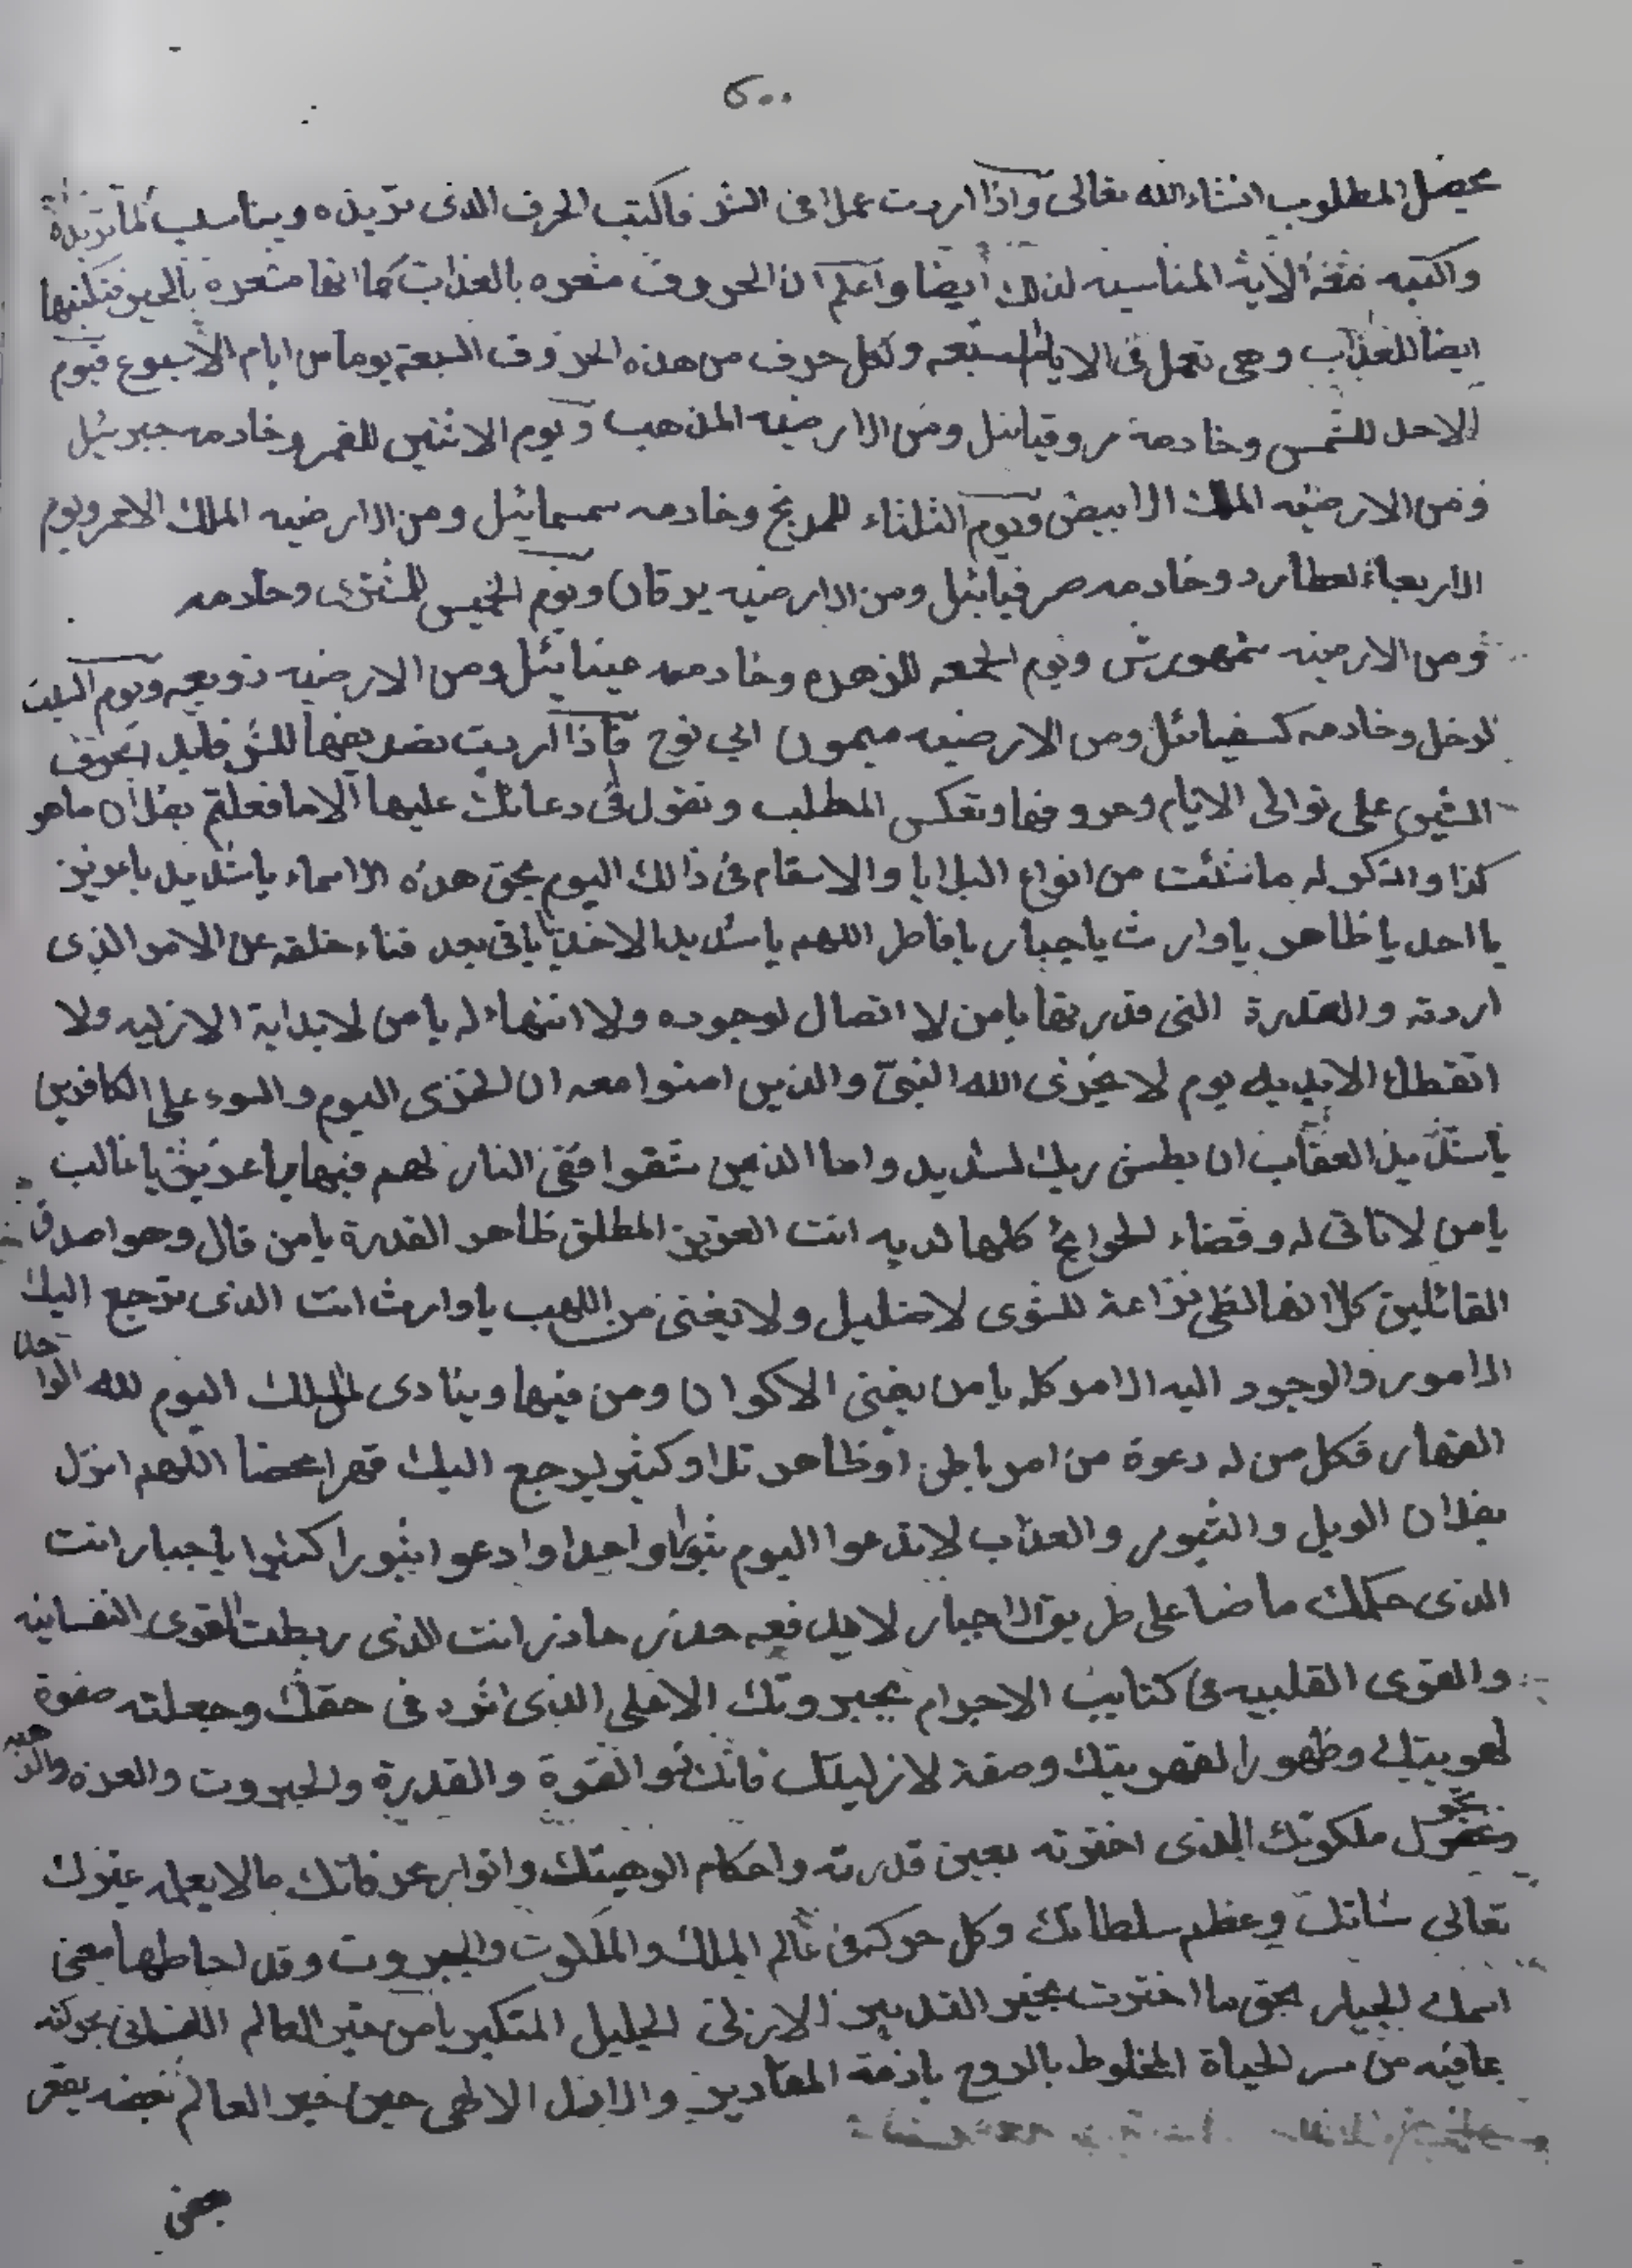 يحصل المطلوب انشاء الله تعالى واذا اردت عملا فى الشر فاكتب الحرف الذى تريده ويناسب لما تريده
واكتبه معه الاية المناسبه لذلك أيضا واعلم ان الحروف مشعره بالعذاب كما انها مشعره بالخير فتكتبها
ايضا للعذاب وهى تعمل فى الايام السبعه ولكل حرف من هذه الحروف السبعة يوما من ايام الأسبوع فيوم
الاحد للشمس وخادمة روقيائيل ومن الارضيه المذهب ويوم الاثنين للقمر وخادمه جبرئيل
ومن الارضيه الملك الابيض ويوم الثلثاء للمريخ وخادمه سمسمائيل ومن الارضيه الملك الاحمر ويوم
الاربعاء لعطارد وخادمه صرفيائيل ومن الارضيه برقان ويوم الخميس للمشترى وخادمه
ومن الارضيه شمهورش ويوم الجمعه للزهره وخادمه عينائيل ومن الارضيه زوبعه ويوم السبت
لزحل وخادمه كسفيائل ومن الارضيه ميمون ابى نوح فاذا اردت تصريفها للشر فابد بحرف
الشين على توالى الايام وحروفها وتعكس المطلب وتقول فى دعائك عليها الا ما فعلتم بفلان ما هو
كذا واذكر له ما شئت من انواع البلايا والاسقام فى ذالك اليوم بحق هذه الاسماء ياشديد ياعزيز
يااحد ياظاهر ياوارث ياجبار يافاطر اللهم ياشديد الاخذ ياباقى بعد فناء خلقه عن الامر الذى
اردته والقدرة التى قدرتها يامن لا اتصال لوجوده ولا انتهاء له يامن لا بداية الازليه ولا
انقطاع الابديه يوم لا يخزى الله النبىّ والذين امنوا معه ان الخزى اليوم والسوء على الكافرين
ياشديد العقاب ان بطش ربك لشديد واما الذين شقوا ففى النار لهم فيها ياعزيز ياغالب
يامن لا ثانى له وقضاء الحوائج كلها لديه انت العزيز المطلق ظاهر القدرة يامن قال وهو اصدق
القائلين كلا انها لظى نزاعة للشوى لا ضليل ولا يغنى من اللهب ياوارث انت الذى ترجع اليك
الامور والوجود اليه الامر كله يامن يفنى الاكوان ومن فيها وينادى لمن الملك اليوم لله الواحد
القهار فكل من له دعوة من امر باطن اوظاهر تلا او كثير يرجع اليك قهرا محضا اللهم انزل
بفلان الويل والثبور والعذاب لا تدعوا اليوم ثبورا واحدا وادعو اثبورا كثيرا ياجبار انت
الذى حكمك ماضا على طريق الاجبار لا يدفعه حذر حاذر انت الذى ربطت القوى النفسانيه
والقوى القلبيه فى كتايب الاجرام بجبروتك الاعلى الذى انفرد فى حقك وجعلته صفوة
لهويتك وظهورا لقهريتك وصفة لازليتك فانك ذو القوة والقدرة والجبروت والعزه والرهبه
ملكوتك الذى اخترته بعين قدرته واحكام الوهيتك وانوار عرفانك مالا يعلمه غيرك
تعالى شانك وعظم سلطانك وكل حركة فى عالم الملك والملكوت والجبروت وقد احاطها معنى
اسمك الجبار بحق ما اخترت بخير القدير الازلى الجليل المتكبر يامن العالم النفسانى بحركته
بمافيه من سر الحياة المخلوط بالروح بازمة المقادير والازل الالهى حين خير العالم